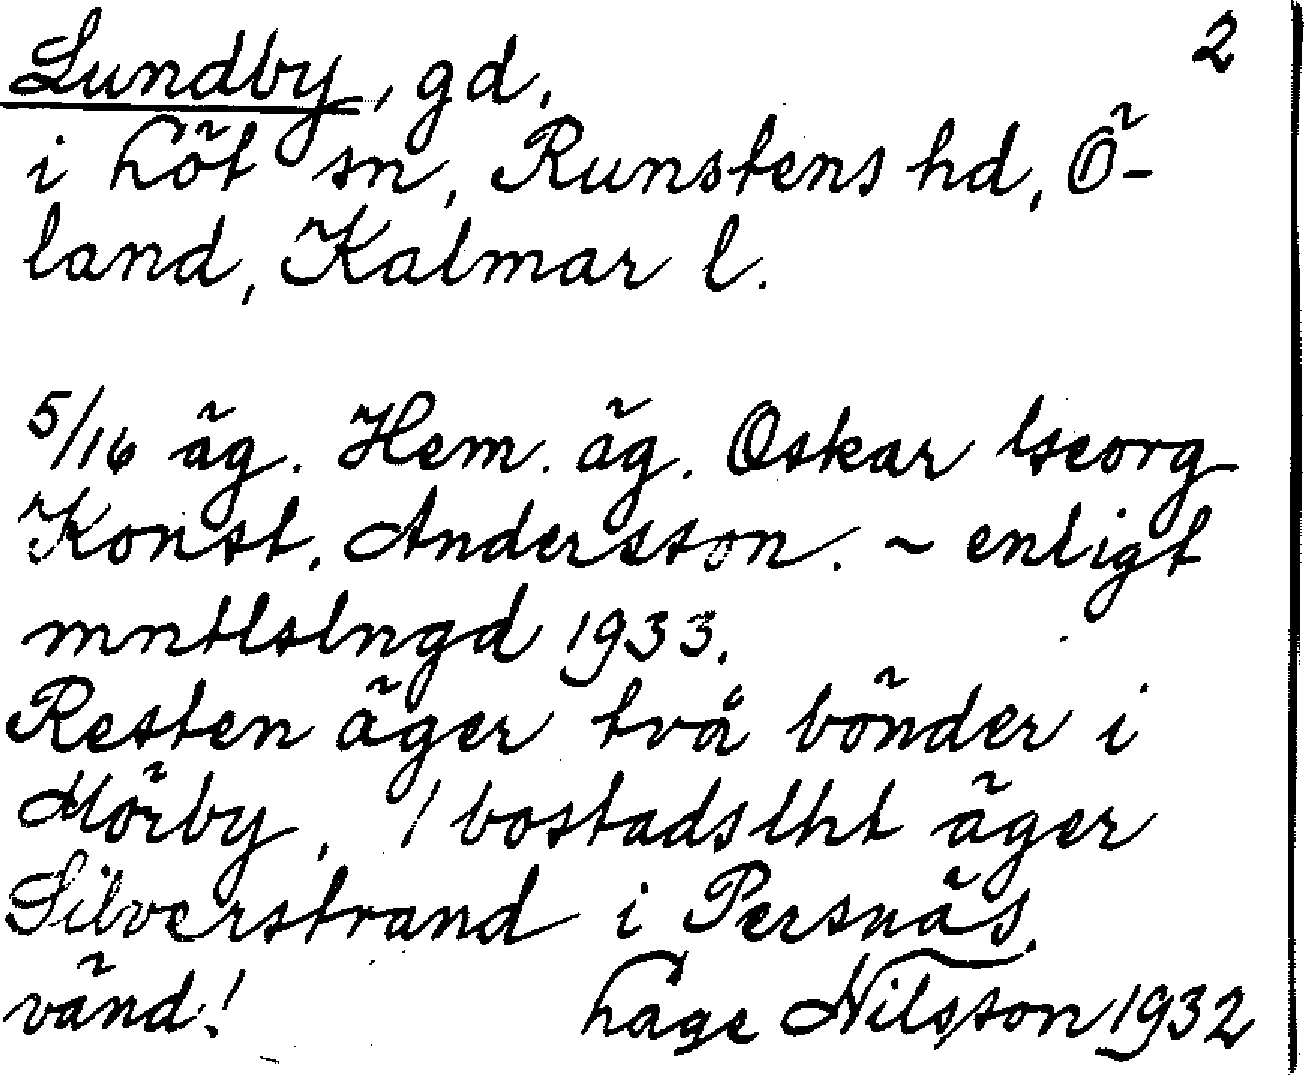 Lundby, gd. 2
i Löt sn, Runstens hd, Ö-
land, Kalmar l.
5/16 äg. Hem. äg. Oskar Georg
Konst. Andersson. ~ enligt
mntlslngd 1933.
Resten äger två bönder i
Mörby. 1 bostadslht äger
Silverstrand i Persnäs.
vänd! Lage Nilsson 1932